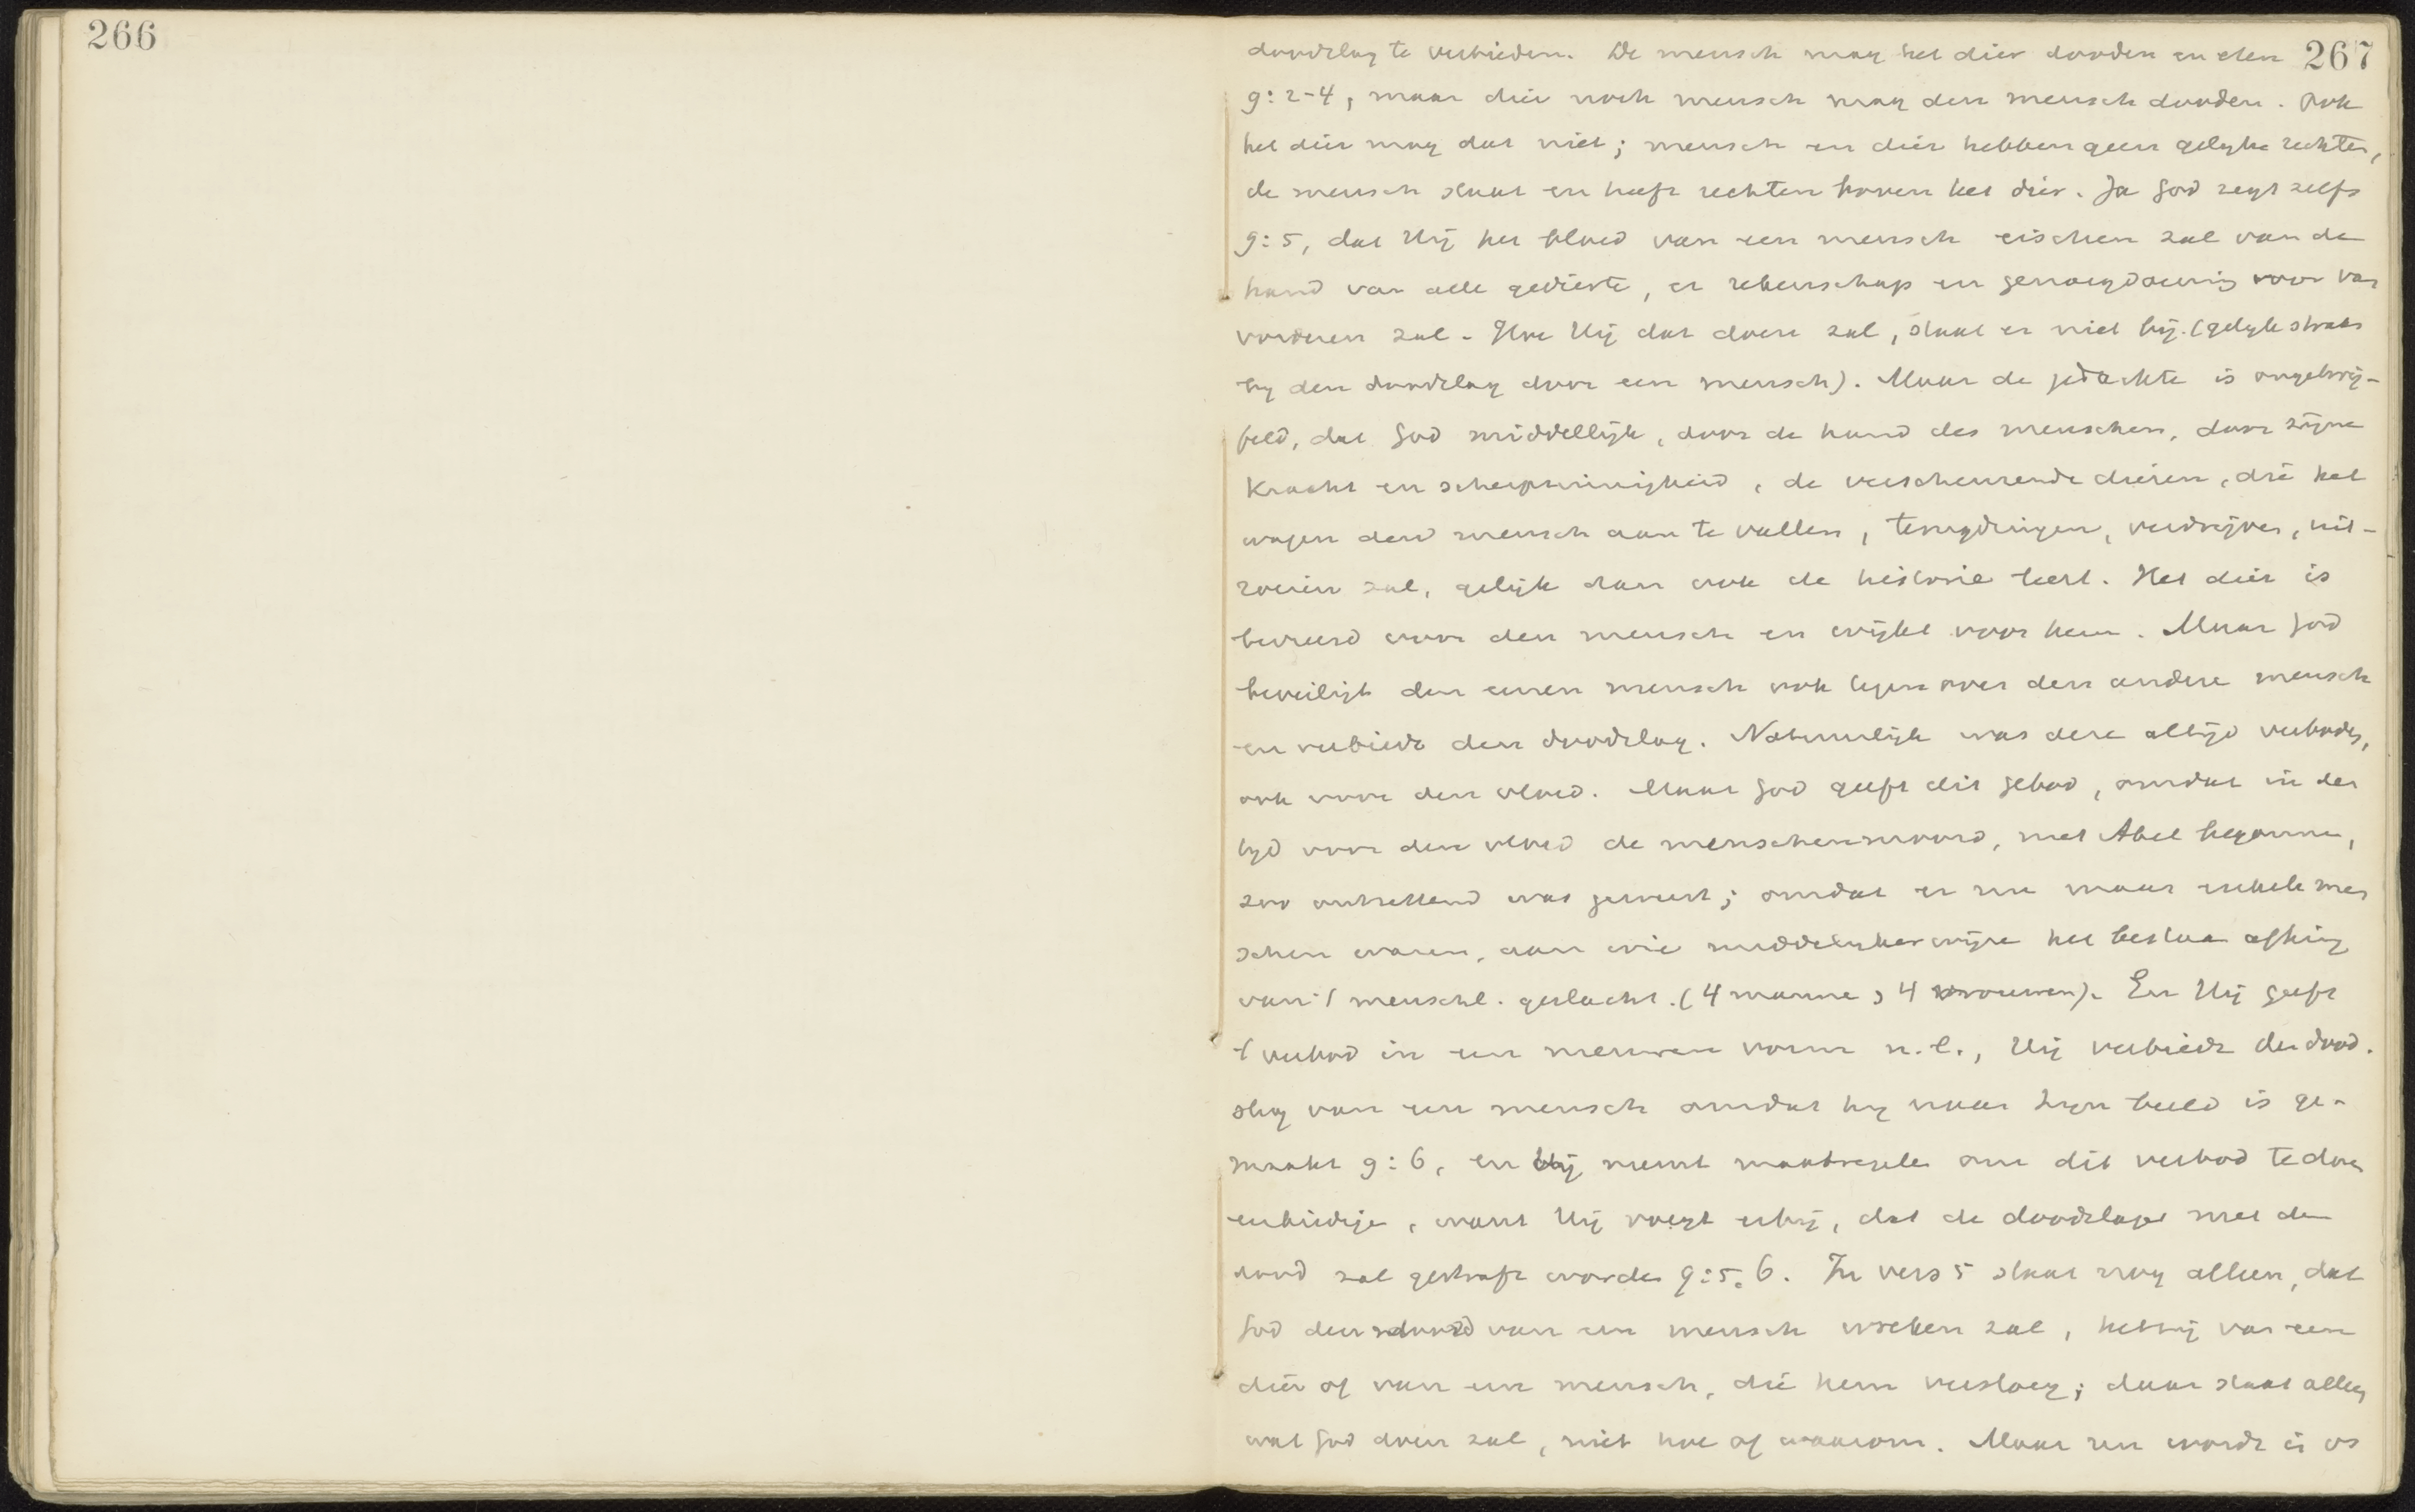 266
267
doodslag te verbieden. De mensch mag het dier dooden en eten
9:2-4, maar dier noch mensch mag den mensch dooden. Ook
het dier mag dat niet; mensch en dier hebben geen gelyke rechten,
de mensch staat en heeft rechten boven het dier. Ja God zegt zelfs
9:5, dat Hij het bloed van een mensch eischen zal van de
hand van alle gedierte, er rekenschap en genoegdoening voor van
vorderen zal. Hoe Hij dat doen zal, staat er niet bij. (gelyk straks
by den doodslag door een mensch). Maar de gedachte is ongetwij-
feld, dat God middellijk, door de hand des menschen, door zijne
kracht en scherpzinnigheid, de verscheurende dieren, die het
wagen den mensch aan te vallen, terugdringen, verdrijven, uit-
roeien zal, gelijk dan ook de historie leert. Het dier is
bevreesd voor den mensch en wijkt voor hem. Maar God
beveiligt den eenen mensch ook tegenover den andere mensch
en verbiedt den doodslag. Natuurlijk was deze altijd verboden,
ook voor den vloed. Maar God geeft dit gebod, omdat in den
tyd voor den vloed de menschenmoord, met Abel begonnen,
zoo ontzettend was geweest; omdat er nu maar enkele men
schen waren, aan wie middelykerwijze het bestaan afhing
van 't menschl. geslacht. (4 manne, 4 vrouwen). En Hij geeft
't verbod in een nieuwen vorm n.l., Hij verbiedt den dood-
slag van een mensch omdat hy naar Zyn beeld is ge-
maakt 9:6, en Hij neemt maatregelen om dit verbod te doen
eerbiedige, want Hij voegt erbij, dat de doodslager met den
dood zal gestraft worden 9:5.6. In vers 5 staat nog alleen, dat
God den dood van een mensch wreken zal, hetzij van een
dier of van een mensch, die hem versloeg; daar staat alleen
wat God doen zal, niet hoe of waarom. Maar nu wordt in vs